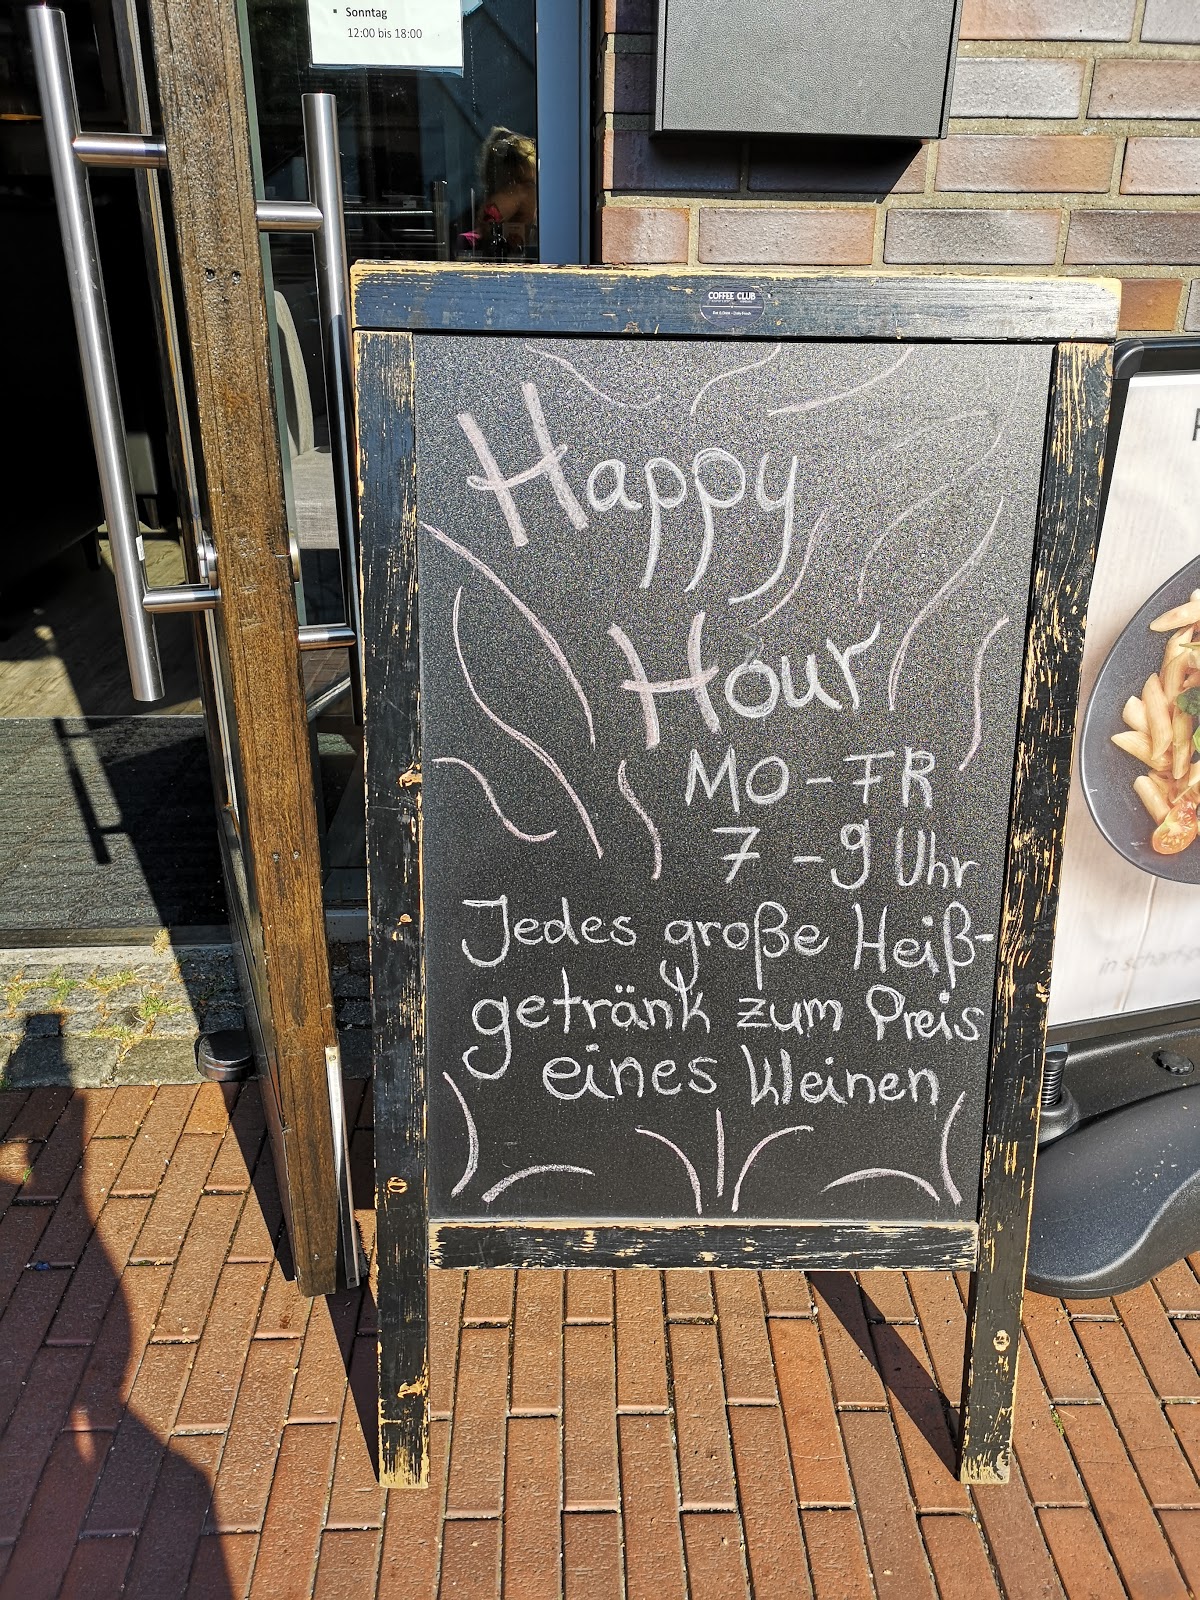 ▪ Sonntag
12:00 bis 18:00
COFFEE CLUB
Happy
Hour
MO-FR
7-9 Uhr
Jedes große Heiß-
getränk zum Preis
eines kleinen